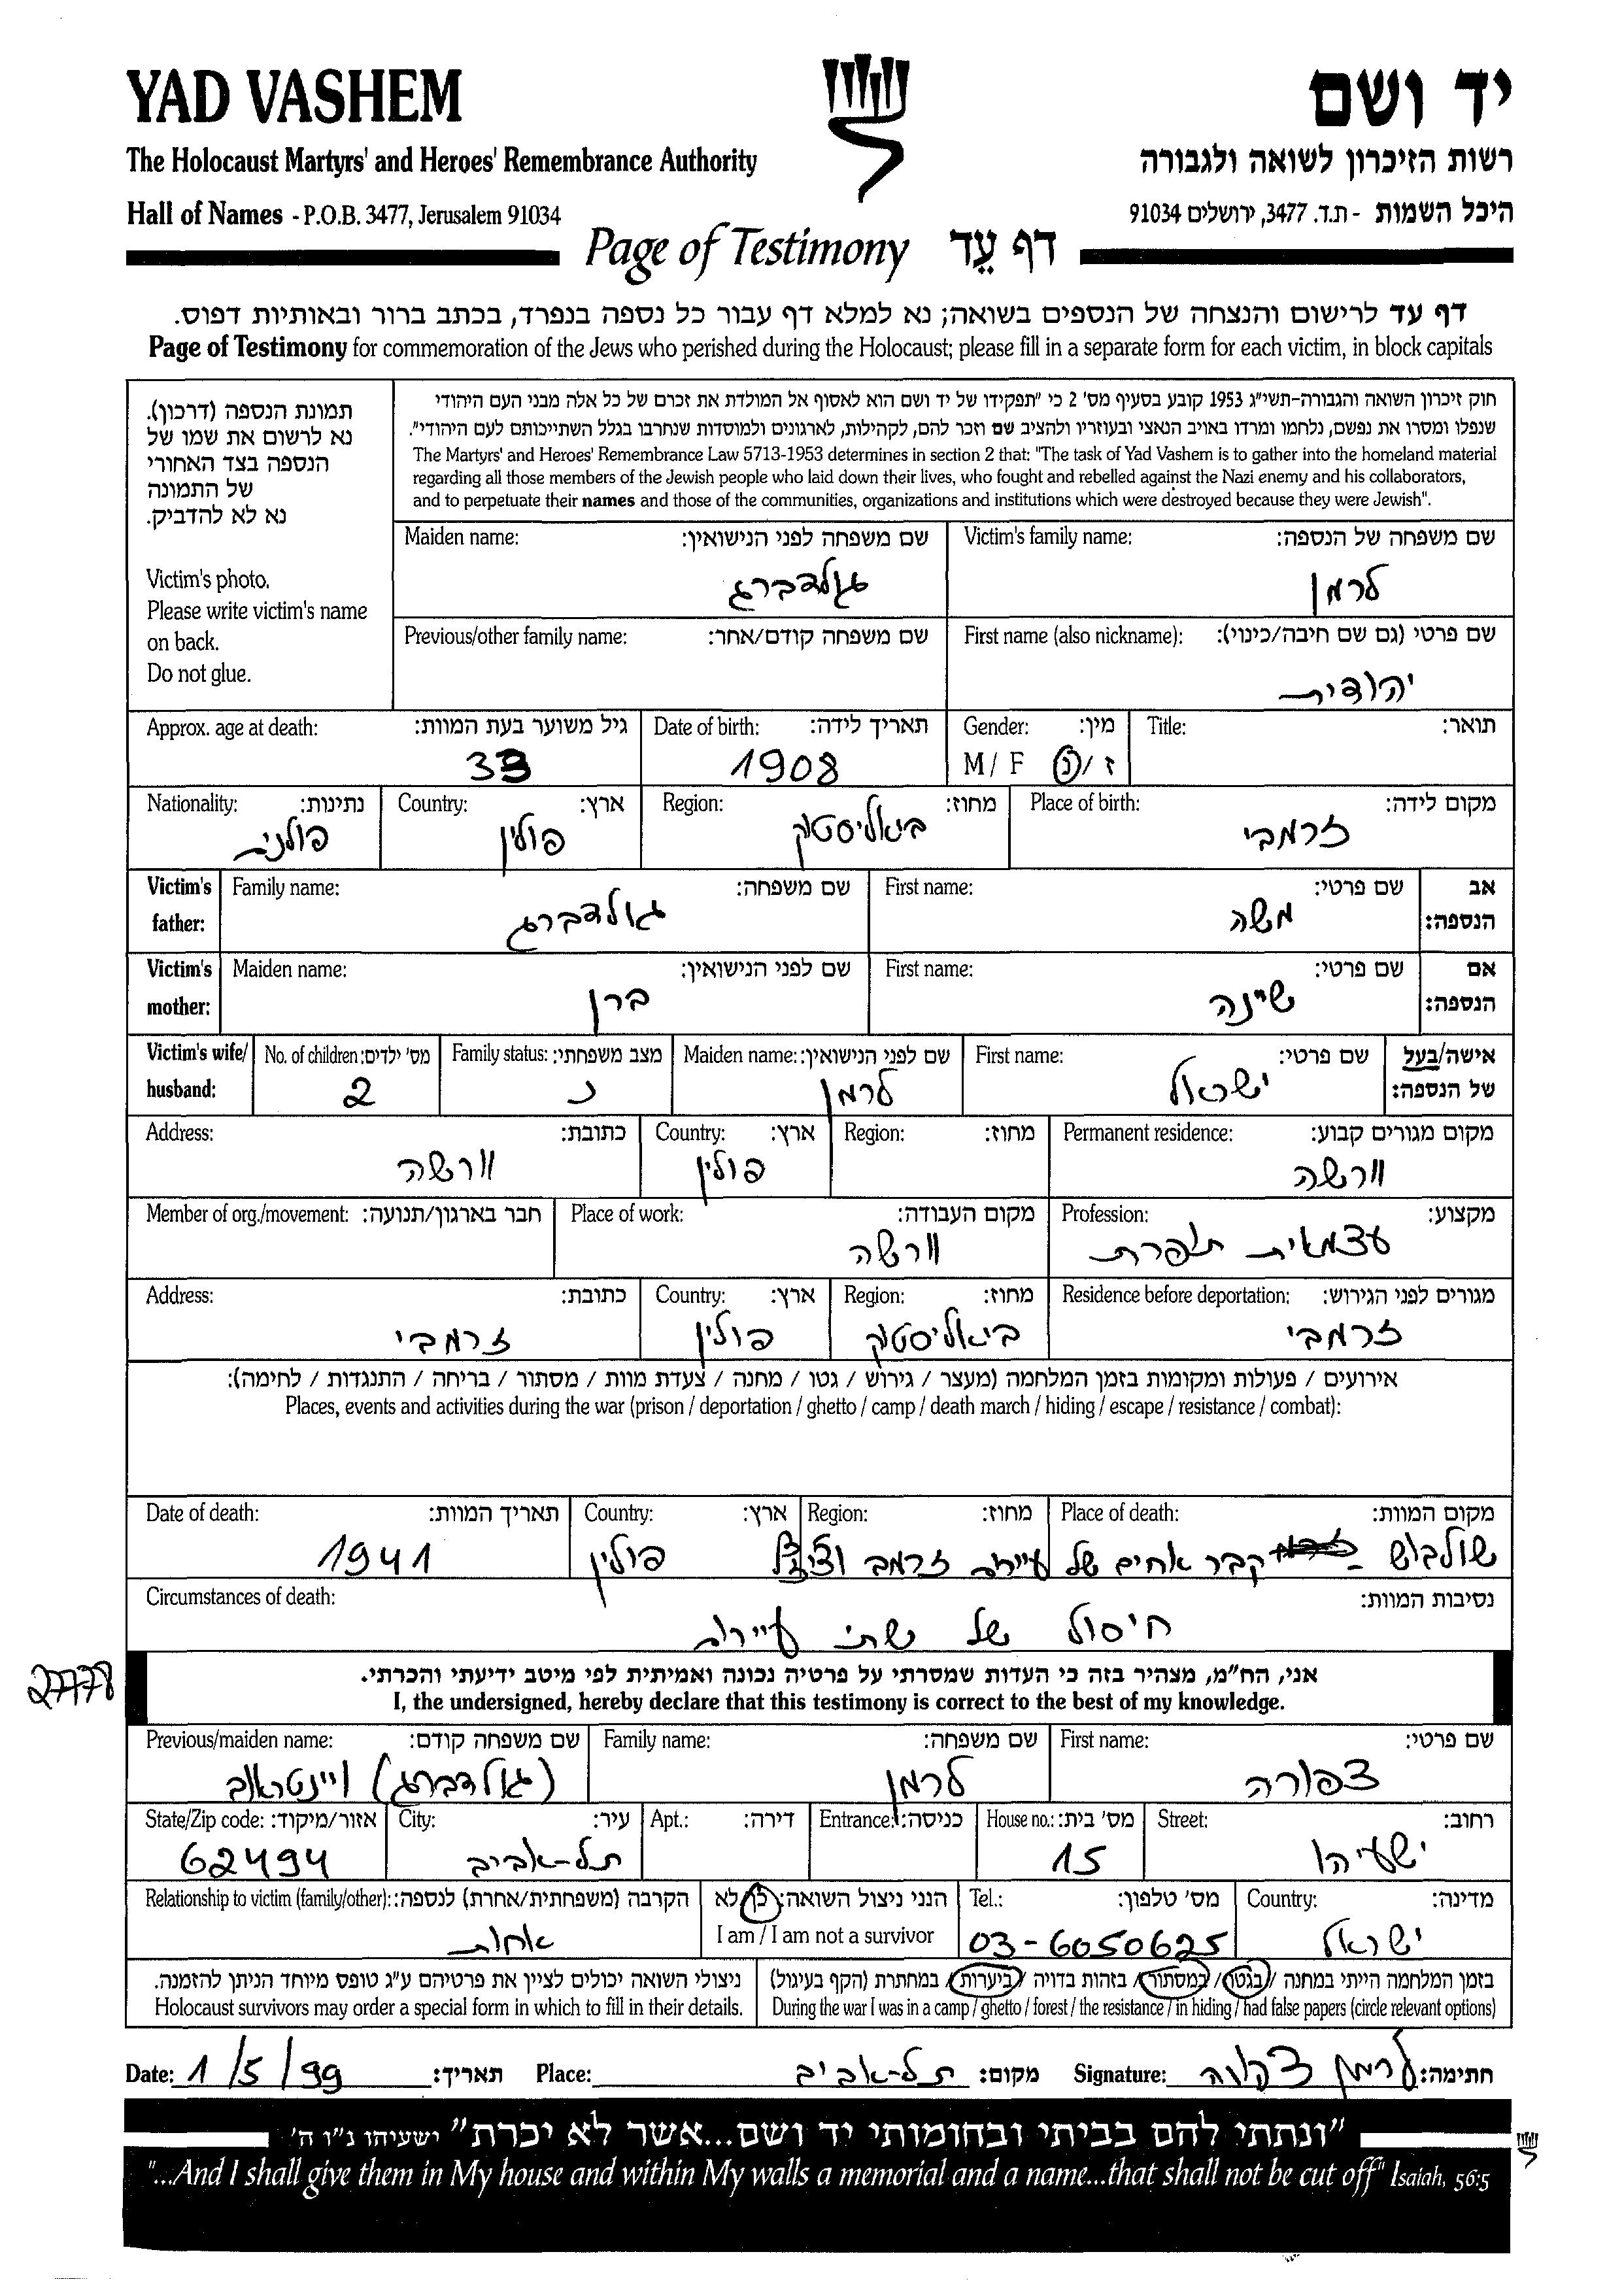 YAD VASHEM
יד ושם
The Holocaust Martyrs' and Heroes' Remembrance Authority
רשות הזיכרון לשואה ולגבורה
Hall of Names - P.O.B. 3477, Jerusalem 91034
היכל השמות - ת.ד. 3477, ירושלים 91034
Page of Testimony דף עֵד
דף עד לרישום והנצחה של הנספים בשואה; נא למלא דף עבור כל נספה בנפרד, בכתב ברור ובאותיות דפוס.
Page of Testimony for commemoration of the Jews who perished during the Holocaust; please fill in a separate form for each victim, in block capitals
תמונת הנספה (דרכון).
נא לרשום את שמו של
הנספה בצד האחורי
של התמונה
נא לא להדביק.
Victim's photo.
Please write victim's name
on back.
Do not glue.
חוק זיכרון השואה והגבורה-תשי"ג 1953 קובע בסעיף מס' 2 כי "תפקידו של יד ושם הוא לאסוף אל המולדת את זכרם של כל אלה מבני העם היהודי
שנפלו ומסרו את נפשם, נלחמו ומרדו באויב הנאצי ובעוזריו ולהציב שם וזכר להם, לקהילות, לארגונים ולמוסדות שנחרבו בגלל השתייכותם לעם היהודי".
The Martyrs' and Heroes' Remembrance Law 5713-1953 determines in section 2 that: "The task of Yad Vashem is to gather into the homeland material
regarding all those members of the Jewish people who laid down their lives, who fought and rebelled against the Nazi enemy and his collaborators,
and to perpetuate their names and those of the communities, organizations and institutions which were destroyed because they were Jewish".
Victim's family name: שם משפחה של הנספה:
לרמן
Maiden name: שם משפחה לפני הנישואין:
גולדברג
First name (also nickname): שם פרטי (גם שם חיבה/כינוי):
יהודית
Previous/other family name: שם משפחה קודם/אחר:
Title: תואר:
Gender: מין:
M / F ז/נ
Date of birth: תאריך לידה:
1908
Approx. age at death: גיל משוער בעת המוות:
33
Place of birth: מקום לידה:
זרמבי
Region: מחוז:
ביאליסטוק
Country: ארץ:
פולין
Nationality: נתינות:
פולנית
Victim's father: אב הנספה:
First name: שם פרטי:
משה
Family name: שם משפחה:
גולדברג
Victim's mother: אם הנספה:
First name: שם פרטי:
שיינה
Maiden name: שם לפני הנישואין:
ברן
Victim's wife/ husband: אישה/בעל של הנספה:
First name: שם פרטי:
ישראל
Maiden name: שם לפני הנישואין:
לרמן
Family status: מצב משפחתי:
נ
No. of children: מס' ילדים:
2
Permanent residence: מקום מגורים קבוע:
וורשה
Region: מחוז:
Country: ארץ:
פולין
Address: כתובת:
וורשה
Profession: מקצוע:
עצמאית תופרת
Place of work: מקום העבודה:
וורשה
Member of org./movement: חבר בארגון/תנועה:
Residence before deportation: מגורים לפני הגירוש:
זרמבי
Region: מחוז:
ביאליסטוק
Country: ארץ:
פולין
Address: כתובת:
זרמבי
אירועים / פעולות ומקומות בזמן המלחמה (מעצר / גירוש / גטו / מחנה / צעדת מוות / מסתור / בריחה / התנגדות / לחימה):
Places, events and activities during the war (prison / deportation / ghetto / camp / death march / hiding / escape / resistance / combat):
Place of death: מקום המוות:
Region: מחוז:
Country: ארץ:
Date of death: תאריך המוות:
שולבוש - קבר אחים של עיירות זרמב
פולין
1941
Circumstances of death: נסיבות המוות:
חיסול של שתי עיירות
27778
אני, הח"מ, מצהיר בזה כי העדות שמסרתי על פרטיה נכונה ואמיתית לפי מיטב ידיעתי והכרתי.
I, the undersigned, hereby declare that this testimony is correct to the best of my knowledge.
First name: שם פרטי:
צפורה
Family name: שם משפחה:
לרמן
Previous/maiden name: שם משפחה קודם:
(גולדברג) ויינטראוב
Street: רחוב:
ישעיהו
House no.: מס' בית:
15
Entrance: כניסה:
Apt.: דירה:
City: עיר:
תל-אביב
State/Zip code: אזור/מיקוד:
62494
Country: מדינה:
ישראל
Tel.: מס' טלפון:
03-6050625
הנני ניצול השואה: כן/לא
I am / I am not a survivor
Relationship to victim (family/other): הקרבה (משפחתית/אחרת) לנספה:
אחות
בזמן המלחמה הייתי במחנה / בגטו / במסתור / בזהות בדויה / ביערות / במחתרת (הקף בעיגול)
During the war I was in a camp / ghetto / forest / the resistance / in hiding / had false papers (circle relevant options)
ניצולי השואה יכולים לציין את פרטיהם ע"ג טופס מיוחד הניתן להזמנה.
Holocaust survivors may order a special form in which to fill in their details.
Date: 1/5/99 תאריך: Place: תל-אביב מקום: Signature: לרמן צפורה חתימה:
"ונתתי להם בביתי ובחומותי יד ושם...אשר לא יכרת" ישעיהו נ"ו ה'
"...And I shall give them in My house and within My walls a memorial and a name...that shall not be cut off" Isaiah, 56:5